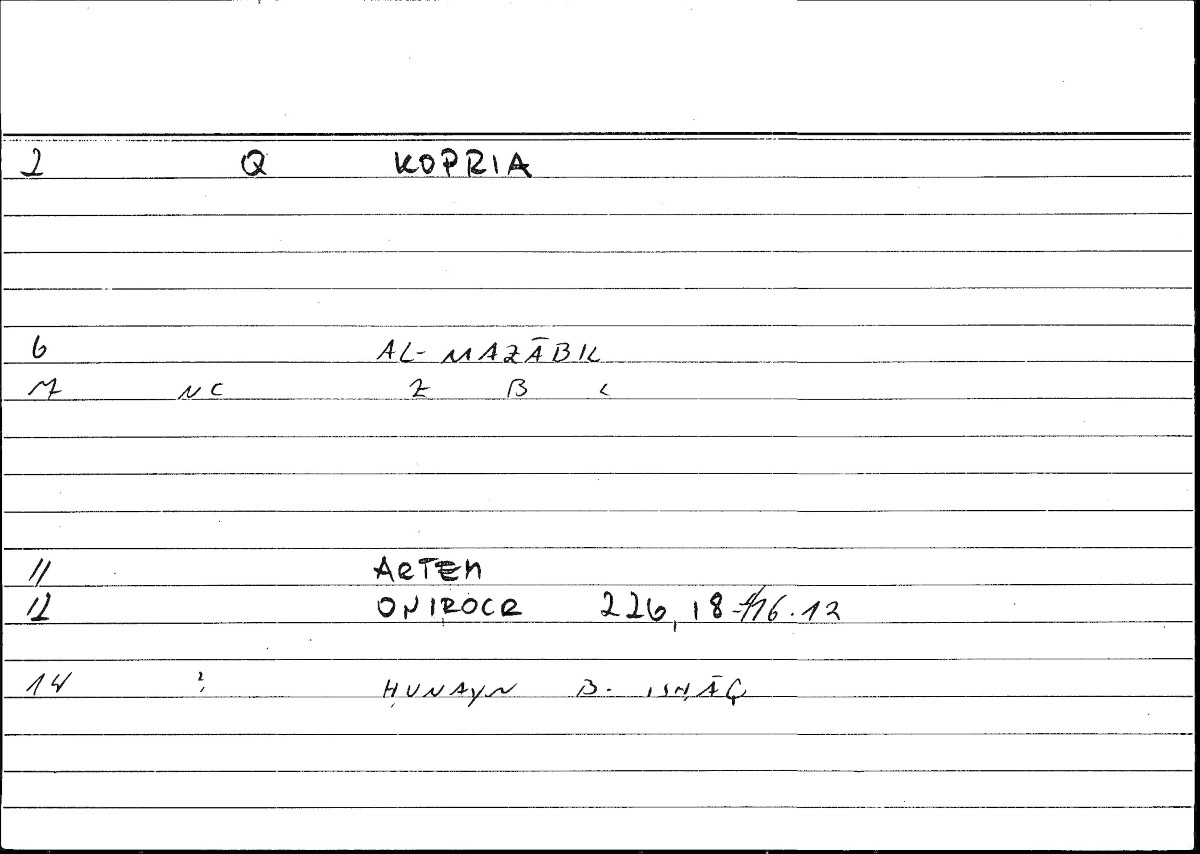 2 Q KOPRIA
6 AL-MAZĀBIL
7 NC Z B L
11 ARTEM
12 ONIROCR 226,18 416.12
14 ? ḤUNAYN B. ISḤĀQ